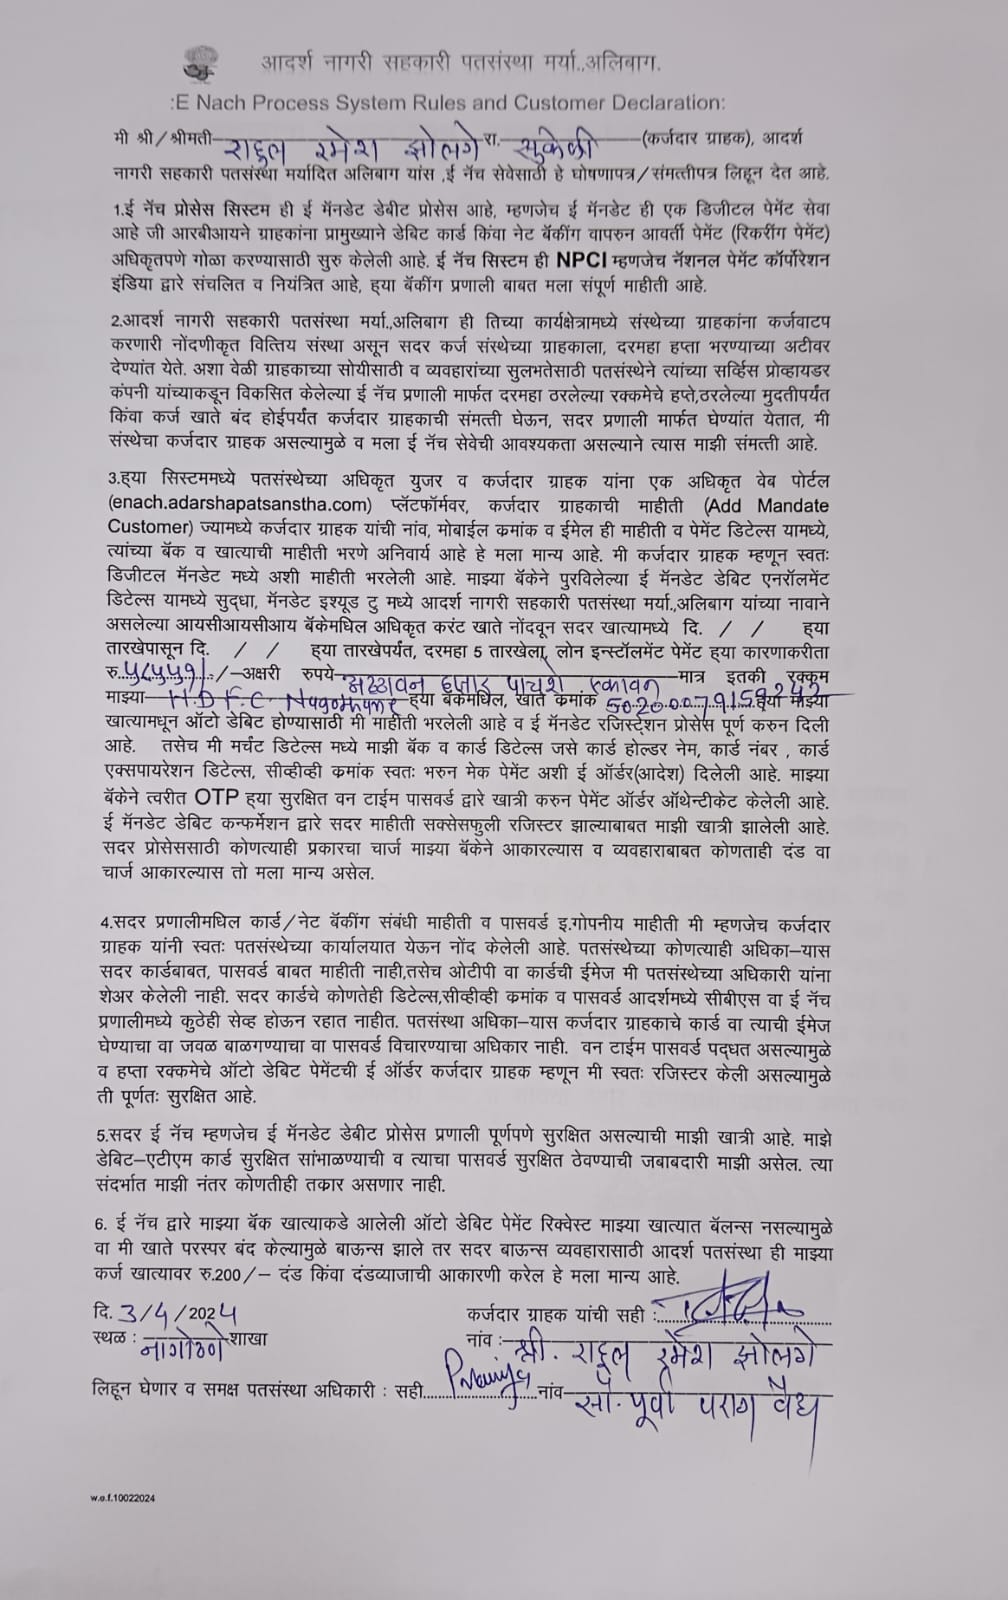 आदर्श नागरी सहकारी पतसंस्था मर्या.,अलिबाग.
:E Nach Process System Rules and Customer Declaration:
मी श्री/श्रीमती राहुल रमेश झोलगे रा. सुकेळी (कर्जदार ग्राहक), आदर्श
नागरी सहकारी पतसंस्था मर्यादित अलिबाग यांस ,ई नॅच सेवेसाठी हे घोषणापत्र/संमत्तीपत्र लिहून देत आहे.
1.ई नॅच प्रोसेस सिस्टम ही ई मॅनडेट डेबीट प्रोसेस आहे, म्हणजेच ई मॅनडेट ही एक डिजीटल पेमेंट सेवा
आहे जी आरबीआयने ग्राहकांना प्रामुख्याने डेबिट कार्ड किंवा नेट बॅकींग वापरुन आवर्ती पेमेंट (रिकरींग पेमेंट)
अधिकृतपणे गोळा करण्यासाठी सुरु केलेली आहे. ई नॅच सिस्टम ही NPCI म्हणजेच नॅशनल पेमेंट कॉर्पोरेशन
इंडिया द्वारे संचलित व नियंत्रित आहे, ह्या बॅकींग प्रणाली बाबत मला संपूर्ण माहीती आहे.
2.आदर्श नागरी सहकारी पतसंस्था मर्या.,अलिबाग ही तिच्या कार्यक्षेत्रामध्ये संस्थेच्या ग्राहकांना कर्जवाटप
करणारी नोंदणीकृत वित्तिय संस्था असून सदर कर्ज संस्थेच्या ग्राहकाला, दरमहा हप्ता भरण्याच्या अटीवर
देण्यांत येते. अशा वेळी ग्राहकाच्या सोयीसाठी व व्यवहारांच्या सुलभतेसाठी पतसंस्थेने त्यांच्या सर्व्हिस प्रोव्हायडर
कंपनी यांच्याकडून विकसित केलेल्या ई नॅच प्रणाली मार्फत दरमहा ठरलेल्या रक्कमेचे हप्ते,ठरलेल्या मुदतीपर्यंत
किंवा कर्ज खाते बंद होईपर्यंत कर्जदार ग्राहकाची संमत्ती घेऊन, सदर प्रणाली मार्फत घेण्यांत येतात, मी
संस्थेचा कर्जदार ग्राहक असल्यामुळे व मला ई नॅच सेवेची आवश्यकता असल्याने त्यास माझी संमत्ती आहे.
3.ह्या सिस्टममध्ये पतसंस्थेच्या अधिकृत युजर व कर्जदार ग्राहक यांना एक अधिकृत वेब पोर्टल
(enach.adarshapatsanstha.com) प्लॅटफॉर्मवर, कर्जदार ग्राहकाची माहीती (Add Mandate
Customer) ज्यामध्ये कर्जदार ग्राहक यांची नांव, मोबाईल क्रमांक व ईमेल ही माहीती व पेमेंट डिटेल्स यामध्ये,
त्यांच्या बॅक व खात्याची माहीती भरणे अनिवार्य आहे हे मला मान्य आहे. मी कर्जदार ग्राहक म्हणून स्वतः
डिजीटल मॅनडेट मध्ये अशी माहीती भरलेली आहे. माझ्या बॅकेने पुरविलेल्या ई मॅनडेट डेबिट एनरॉलमेंट
डिटेल्स यामध्ये सुद्धा, मॅनडेट इश्यूड टु मध्ये आदर्श नागरी सहकारी पतसंस्था मर्या.,अलिबाग यांच्या नावाने
असलेल्या आयसीआयसीआय बॅकेमधिल अधिकृत करंट खाते नोंदवून सदर खात्यामध्ये दि. / / ह्या
तारखेपासून दि. / / ह्या तारखेपर्यंत, दरमहा 5 तारखेला, लोन इन्स्टॉलमेंट पेमेंट ह्या कारणाकरीता
रु.५८५५१/-/-अक्षरी रुपये अठ्ठावन हजार पाचशे एकावन मात्र इतकी रक्कम
माझ्या H.D.F.C Nagothane ह्या बॅकेमधिल, खाते क्रमांक 50200079159242 ह्या माझ्या
खात्यामधून ऑटो डेबिट होण्यासाठी मी माहीती भरलेली आहे व ई मॅनडेट रजिस्ट्रेशन प्रोसेस पूर्ण करुन दिली
आहे. तसेच मी मर्चंट डिटेल्स मध्ये माझी बॅक व कार्ड डिटेल्स जसे कार्ड होल्डर नेम, कार्ड नंबर , कार्ड
एक्सपायरेशन डिटेल्स, सीव्हीव्ही क्रमांक स्वतः भरुन मेक पेमेंट अशी ई ऑर्डर(आदेश) दिलेली आहे. माझ्या
बॅकेने त्वरीत OTP ह्या सुरक्षित वन टाईम पासवर्ड द्वारे खात्री करुन पेमेंट ऑर्डर ऑथेन्टीकेट केलेली आहे.
ई मॅनडेट डेबिट कन्फर्मेशन द्वारे सदर माहीती सक्सेसफुली रजिस्टर झाल्याबाबत माझी खात्री झालेली आहे.
सदर प्रोसेससाठी कोणत्याही प्रकारचा चार्ज माझ्या बॅकेने आकारल्यास व व्यवहाराबाबत कोणताही दंड वा
चार्ज आकारल्यास तो मला मान्य असेल.
4.सदर प्रणालीमधिल कार्ड/नेट बॅकींग संबंधी माहीती व पासवर्ड इ.गोपनीय माहीती मी म्हणजेच कर्जदार
ग्राहक यांनी स्वतः पतसंस्थेच्या कार्यालयात येऊन नोंद केलेली आहे. पतसंस्थेच्या कोणत्याही अधिका-यास
सदर कार्डबाबत, पासवर्ड बाबत माहीती नाही,तसेच ओटीपी वा कार्डची ईमेज मी पतसंस्थेच्या अधिकारी यांना
शेअर केलेली नाही. सदर कार्डचे कोणतेही डिटेल्स,सीव्हीव्ही क्रमांक व पासवर्ड आदर्शमध्ये सीबीएस वा ई नॅच
प्रणालीमध्ये कुठेही सेव्ह होऊन रहात नाहीत. पतसंस्था अधिका-यास कर्जदार ग्राहकाचे कार्ड वा त्याची ईमेज
घेण्याचा वा जवळ बाळगण्याचा वा पासवर्ड विचारण्याचा अधिकार नाही. वन टाईम पासवर्ड पद्धत असल्यामुळे
व हप्ता रक्कमेचे ऑटो डेबिट पेमेंटची ई ऑर्डर कर्जदार ग्राहक म्हणून मी स्वतः रजिस्टर केली असल्यामुळे
ती पूर्णतः सुरक्षित आहे.
5.सदर ई नॅच म्हणजेच ई मॅनडेट डेबीट प्रोसेस प्रणाली पूर्णपणे सुरक्षित असल्याची माझी खात्री आहे. माझे
डेबिट-एटीएम कार्ड सुरक्षित सांभाळण्याची व त्याचा पासवर्ड सुरक्षित ठेवण्याची जबाबदारी माझी असेल. त्या
संदर्भात माझी नंतर कोणतीही तक्रार असणार नाही.
6. ई नॅच द्वारे माझ्या बॅक खात्याकडे आलेली ऑटो डेबिट पेमेंट रिक्वेस्ट माझ्या खात्यात बॅलन्स नसल्यामुळे
वा मी खाते परस्पर बंद केल्यामुळे बाऊन्स झाले तर सदर बाऊन्स व्यवहारासाठी आदर्श पतसंस्था ही माझ्या
कर्ज खात्यावर रु.200/- दंड किंवा दंडव्याजाची आकारणी करेल हे मला मान्य आहे.
दि. 3/4/2024 कर्जदार ग्राहक यांची सही :
स्थळ : नागोठणे शाखा नांव : श्री. राहुल रमेश झोलगे
लिहून घेणार व समक्ष पतसंस्था अधिकारी : सही नांव सौ. पूर्वा पराग वैद्य
w.e.f.10022024